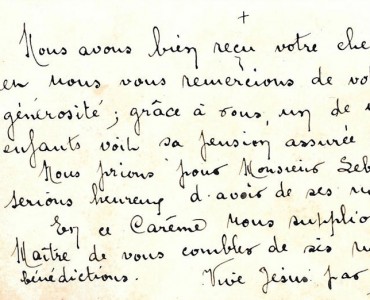 Nous avons bien reçu votre che
en nous vous remercions de vo
générosité ; grâce à vous, un de
enfants voit sa pension assurée
Nous prions pour Monsieur Seb
serions heureux d'avoir de ses
En ce Carême nous supplio
Maître de vous combler de ses
bénédictions. Vive Jésus par